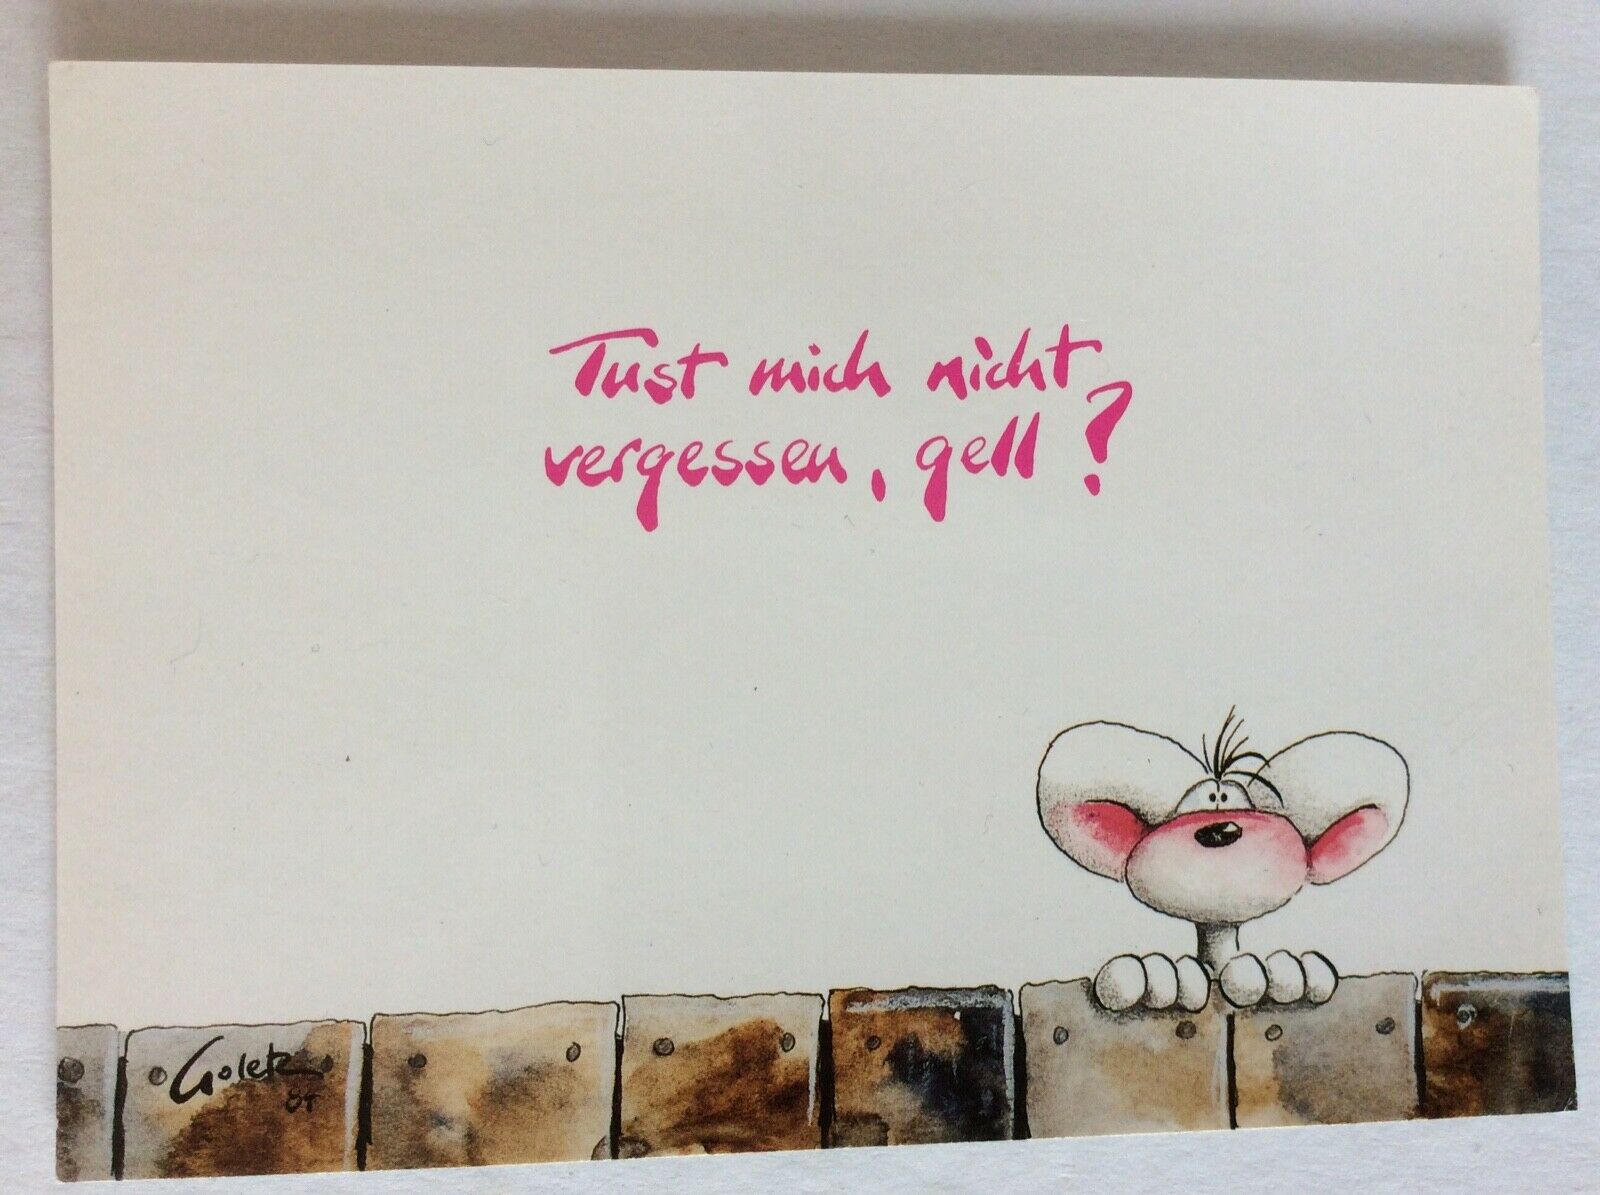 Tust mich nicht
vergessen, gell?
Goletz